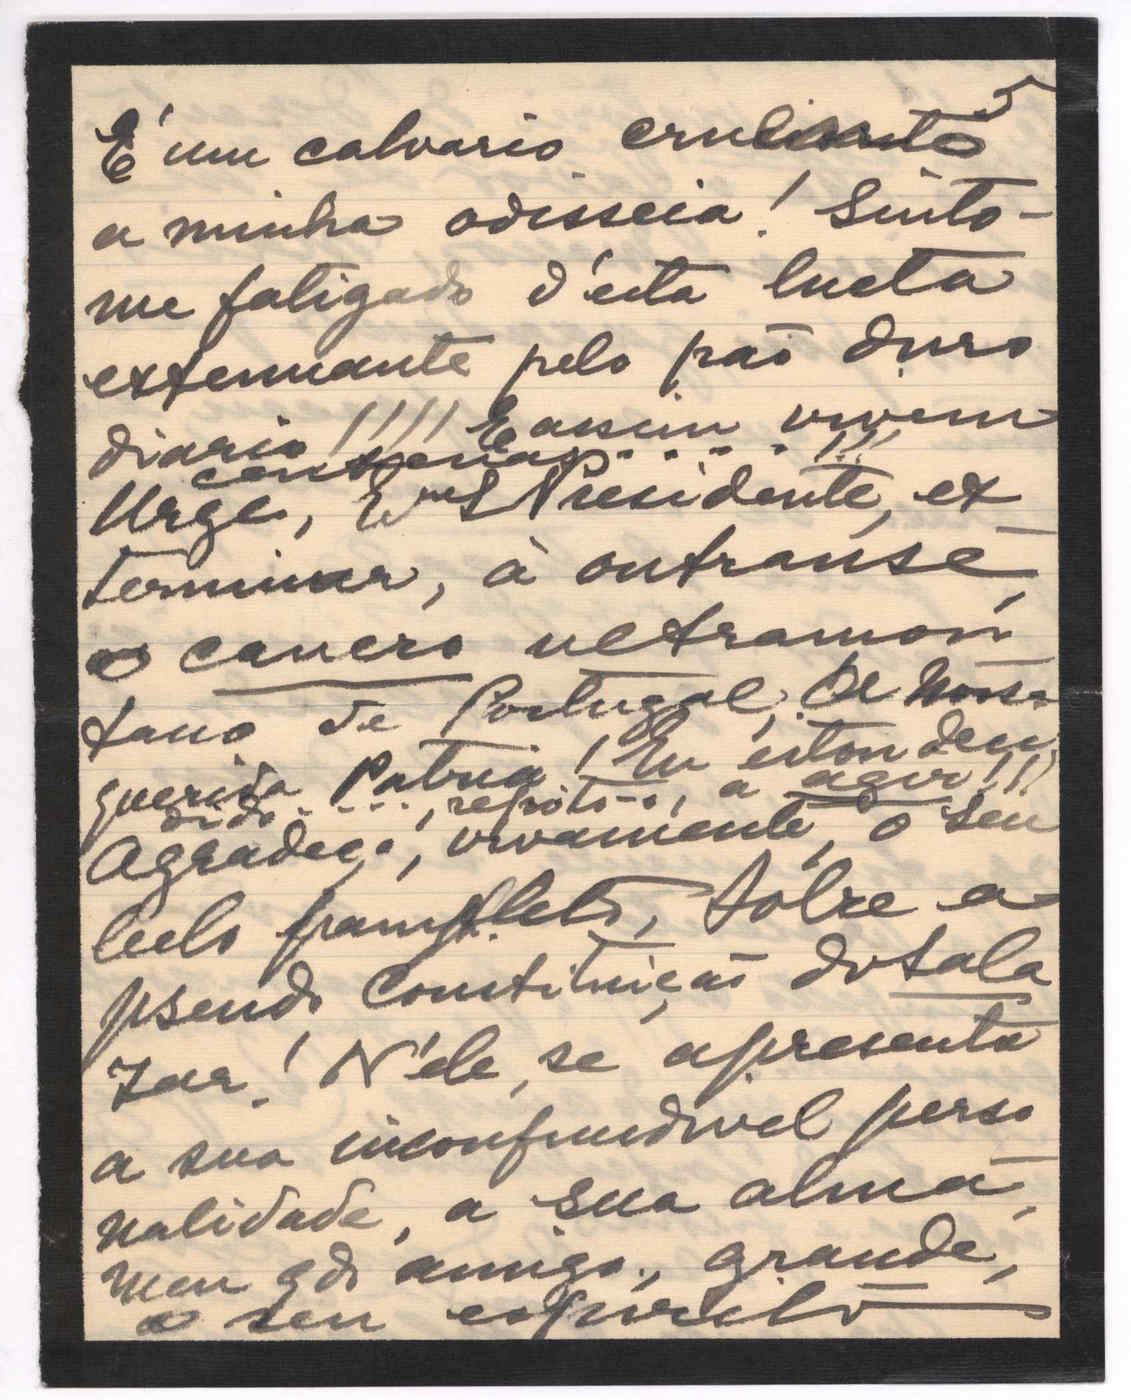 5
É um calvario cruciante
a minha odisseia! Sinto-
me fatigado d'esta lucta
extenuante pelo pão duro
diario!!!! E assim vivem
centenas.....!!!
Urge, Exmo Sr Presidente, ex
terminar, à outranse,
o cancro ultramon
tano de Portugal, da nossa
querida Patria! Eu estou deci
dido...., repito-o, a agir!!!
Agradeço, vivamente, o seu
belo pamphleto, sobre a
pseudo Constituição do Sala
zar! N'ele, se apresenta
a sua inconfundivel perso
nalidade, a sua alma,
meu qdo amigo., grande,
o seu espirito